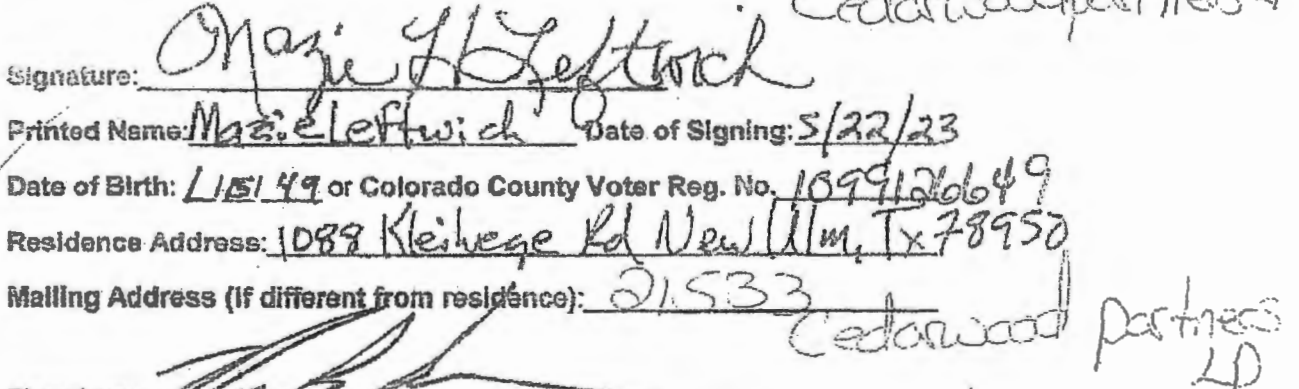 Cedarwood partners
Signature: Mazie H Leftwich
Printed Name: Mazie Leftwich Date of Signing: 5/22/23
Date of Birth: or Colorado County Voter Reg. No. 1099126649
Residence Address: 1088 Kleivege Rd New Ulm, Tx 78950
Mailing Address (if different from residence): 21,533
Cedarwood partners
LP